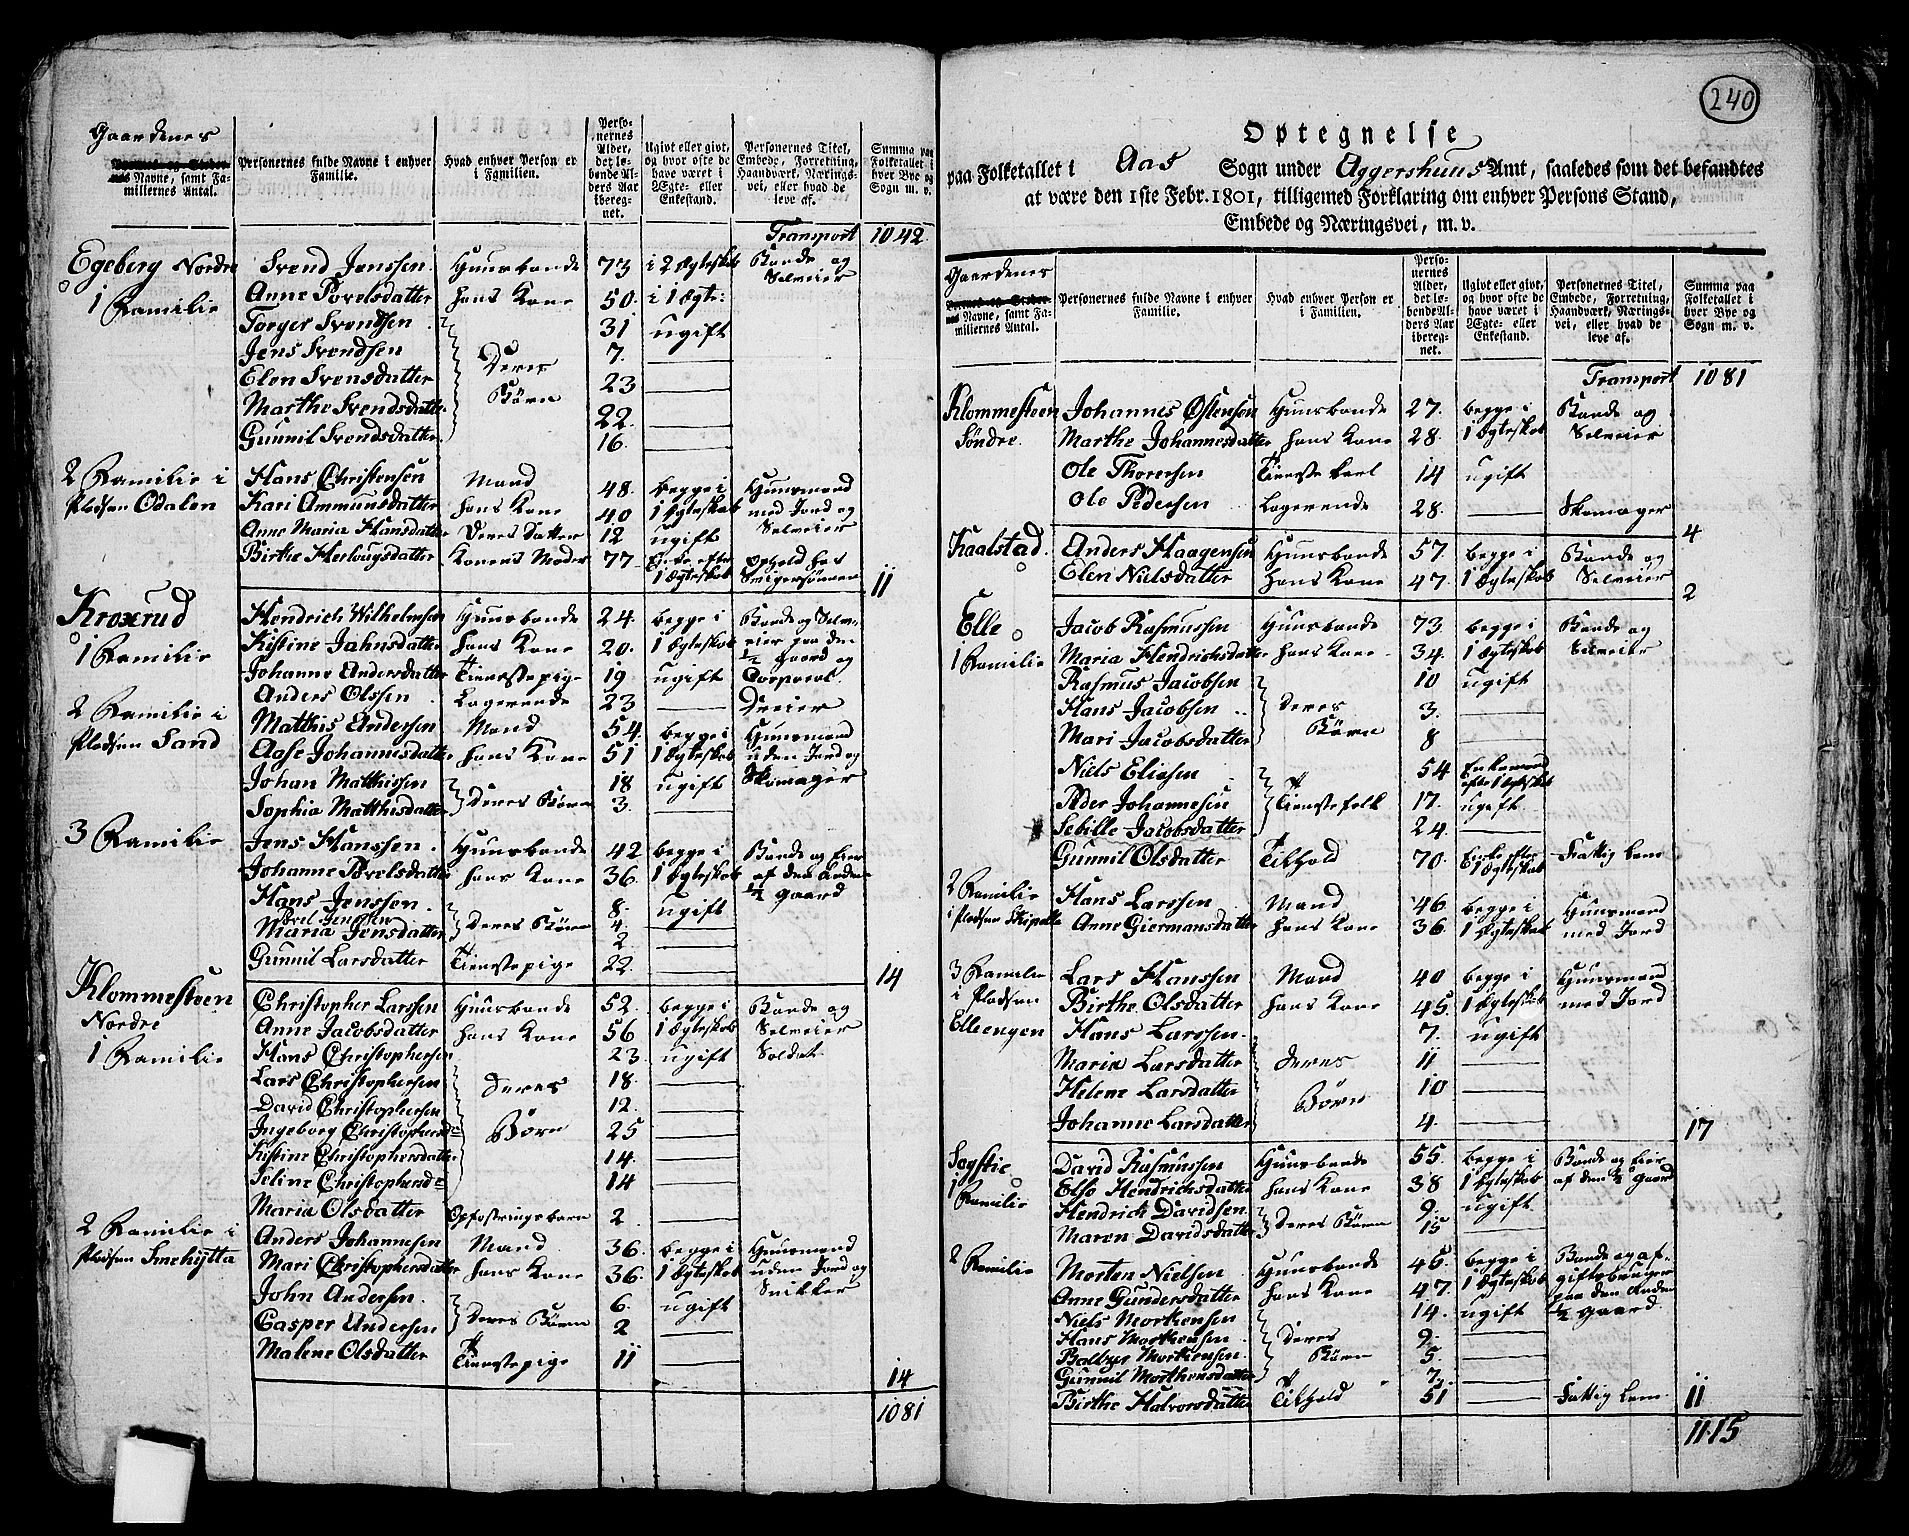 Gaardenes
Personernes fulde Navne i enhver Familie.
Hvad enhver Person er i Familien.
Personernes Alder, det løbende Alders Aar iberegnet.
Ugivt eller givt, og hvor ofte de have været i Ægte- eller Enkestand.
Personernes Titel, Embede, Forretning, Haandværk, Næringsvei, eller hvad de leve af.
Summa paa Folketallet i hver Bye og Sogn m. v.
Navne, samt Familiernes Antal.
Transport 1042
Egeberg Nordre Svend Jenssen Huusbonde 73 i 2 Ægteskab Bonde og Selveier
1 Familie Anne Povelsdatter hans Kone 50. i 1 Ægte:
Torger Svendsen 31 ugift
Jens Svendsen Deres Børn 7.
Elen Svensdatter 23
Marthe Svendsdatter 22.
Gunnil Svendsdatter 16.
2 Familie i Pladsen Odalen Hans Christensen Mand 48. begge i 1 Ægteskab Huusmand med Jord og Selveier
Kari Ammunsdatter hans Kone 40
Anne Maria Hansdatter Deres Datter 12 ugift
Birthe Herlougsdatter Konens Moder 77 Enke efter 1 Ægteskab Ophold hos Svigersønnen 11
Kroxrud
1 Familie Hendrich Wilhelmsen Huusbonde 24. begge i 1 Ægteskab Bonde og Selveier paa den 1/2 Gaard og Corporal
Kistine Jahnsdatter hans Kone 20.
Johanne Andersdatter Tienestepige 19 ugift
Anders Olssen Logerende 23 Dreier
2 Familie i Pladsen Sand Matthis Andersen Mand 54. begge i 1 Ægteskab Huusmand uden Jord og Skomager
Aase Johannisdatter hans Kone 51
Johan Matthissen Deres Børn 18 ugift
Sophia Matthisdatter 3.
3 Familie Jens Hanssen Huusbonde 42 begge i 1 Ægteskab Bonde og Eier af den anden 1/2 Gaard
Johanne Povelsdatter hans Kone 36.
Hans Jenssen Deres Børn 8. ugift
Povel Jenssen 4.
Maria Jensdatter 2.
Gunnil Larsdatter Tienestepige 22. 14
Klommesteen Nordre
1 Familie Christopher Larssen Huusbonde 52. begge i 1 Ægteskab Bonde og Selveier
Anne Jacobsdatter hans Kone 56
Hans Christophersen 23. ugift Soldat
Lars Christophersen Deres Børn 18.
David Christophersen 12.
Ingeborg Christophersd 25
Kistine Christophersdatter 14.
Seline Christophersd 14
Maria Olsdatter Opfostringsbarn 2.
2 Familie i Pladsen Smehytta Anders Johannesen Mand 36. begge i 1 Ægteskab Huusmand uden Jord og Snikker
Mari Christophersdatter hans Kone 36.
John Andersen Deres Børn 6. ugift
Casper Andersen 2
Malene Olsdatter Tienestepige 11 14
1081
240
Optegnelse
paa Folketallet i Aas Sogn under Aggershuus Amt, saaledes som det befandtes
at være den 1ste Febr. 1801, tilligemed Forklaring om enhver Persons Stand,
Embede og Næringsvei, m. v.
Gaardenes
Navne, samt Familiernes Antal.
Personernes fulde Navne i enhver Familie.
Hvad enhver Person er i Familien.
Personernes Alder, det løbende Alders Aar iberegnet.
Ugivt eller givt, og hvor ofte de have været i Ægte- eller Enkestand.
Personernes Titel, Embede, Forretning, Haandværk, Næringsvei, eller hvad de leve af.
Summa paa Folketallet i hver Bye og Sogn m. v.
Transport 1081
Klommesteen Søndre. Johannes Østensøn Huusbonde 27. begge i 1 Ægteskab Bonde og Selveier
Marthe Johannesdatter hans Kone 28.
Ole Thoresen Tieneste karl 14 ugift
Ole Pedersen Logerende 28. Skomager 4
Kaalstad. Anders Haagensen Huusbonde 57. begge i 1 Ægteskab Bonde og Selveier
Elen Nielsdatter hans Kone 47. 2
Elle
1 Familie Jacob Rasmussen Huusbonde 73. begge i 1 Ægteskab Bonde og Selveier
Maria Hendrichsdatter hans Kone 34.
Rasmus Jacobsen Deres Børn 10 ugift
Hans Jacobsen 3.
Mari Jacobsdatter 8
Niels Eliesen Tienestefolk 54 Enkemand efter 1 Ægteskab
Peder Johannesen 17. ugift
Sebille Jacobsdatter 24.
Gunnil Olsdatter Tilhold 70. Enke efter 1 Ægteskab Fattig Lem
2 Familie i Pladsen Hans Larssen Mand 46 begge i 1 Ægteskab Huusmand med Jord
Anne Giermansdatter hans Kone 36.
3 Familie i Pladsen Elleengen Lars Hanssen Mand 40 begge i 1 Ægteskab Huusmand med Jord
Birthe Olsdatter hans Kone 45.
Hans Larssen 7. ugift
Maria Larsdatter Deres Børn 11
Helene Larsdatter 10
Johanne Larsdatter 4. 17
Sogstie
1 Familie David Rasmussen Huusbonde 55. begge i 1 Ægteskab Bonde og Eier af den 1/2 Gaard
Else Hendrichsdatter hans Kone 38
Hendrich Davidsen Deres Børn 9. ugift
Maren Davidsdatter 15
2 Familie Morten Nielsen Huusbonde 46. begge i 1 Ægteskab Bonde og afgiftsbruger paa den anden 1/2 Gaard
Anne Gundersdatter hans Kone 47.
Niels Mortensen 14. ugift
Hans Mortensen Deres Børn 9.
Balzer Mortensen 5.
Gunnil Morthensdatter 7.
Birthe Halvorsdatter Tilhold 51 Fattig Lem. 11
1115